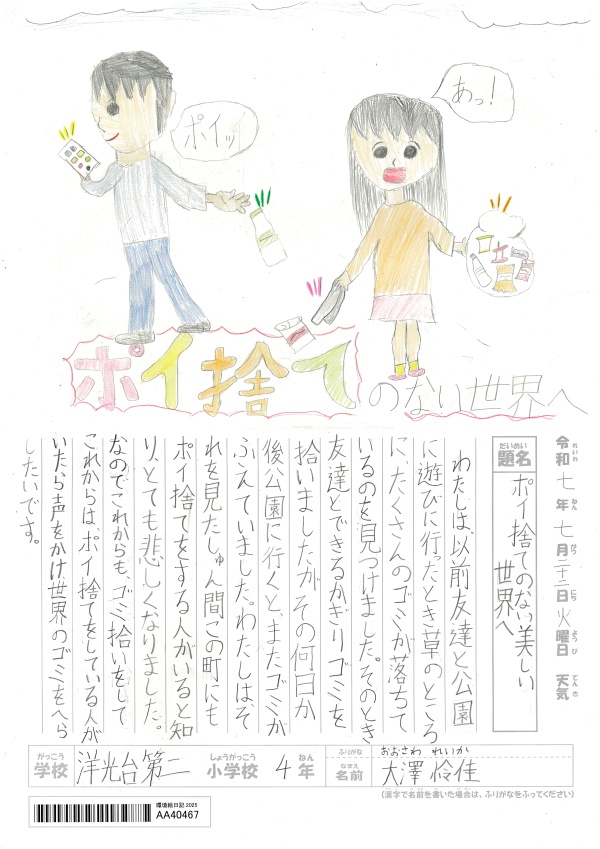 ポイッ
あっ!
ポイ捨てのない世界へ
令和七年七月二十二日火曜日 天気
れいわ ねん がつ にち ようび てんき
だいめい
題名
ポイ捨てのない美しい
世界へ
わたしは、以前友達と公園
に遊びに行ったとき草のところ
に、たくさんのゴミが落ちて
いるのを見つけました。そのとき
友達とできるかぎりゴミを
拾いましたが、その何日か
後公園に行くと、またゴミが
ふえていました。わたしは、そ
れを見たしゅん間、この町にも
ポイ捨てをする人がいると知
り、とても悲しくなりました。
なのでこれからも、ゴミ拾いをして
これからは、ポイ捨てをしている人が
いたら声をかけ世界のゴミをへら
したいです。
がっこう しょうがっこう ねん
学校 洋光台第二 小学校 4 年
ふりがな おおさわ れいか
なまえ
名前 大澤 怜佳
(漢字で名前を書いた場合は、ふりがなをふってください)
環境絵日記 2025
AA40467